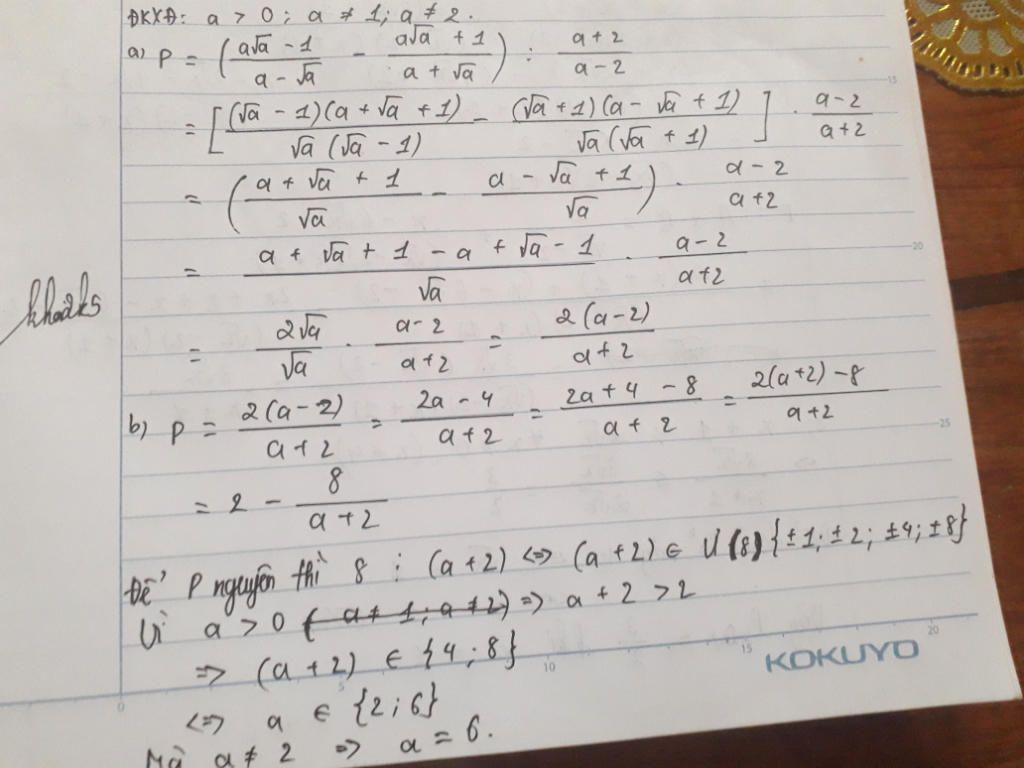 ĐKXĐ: a > 0 ; a ≠ 1 ; a ≠ 2.
a) P = ( (a√a - 1)/(a - √a) - (a√a + 1)/(a + √a) ) : (a + 2)/(a - 2)
= [ (√a - 1)(a + √a + 1)/(√a (√a - 1)) - (√a + 1)(a - √a + 1)/(√a (√a + 1)) ] . (a - 2)/(a + 2)
= ( (a + √a + 1)/√a - (a - √a + 1)/√a ) . (a - 2)/(a + 2)
= (a + √a + 1 - a + √a - 1)/√a . (a - 2)/(a + 2)
khoa2k5
= 2√a/√a . (a - 2)/(a + 2) = 2(a - 2)/(a + 2)
b) P = 2(a - 2)/(a + 2) = (2a - 4)/(a + 2) = (2a + 4 - 8)/(a + 2) = (2(a + 2) - 8)/(a + 2)
= 2 - 8/(a + 2)
Để P nguyên thì 8 ⋮ (a + 2) <=> (a + 2) ∈ Ư(8) {±1; ±2; ±4; ±8}
Vì a > 0 ( a ≠ 1; a ≠ 2) => a + 2 > 2
=> (a + 2) ∈ {4 ; 8}
<=> a ∈ {2 ; 6}
Mà a ≠ 2 => a = 6.
KOKUYO
5
10
15
20
15
20
25
0